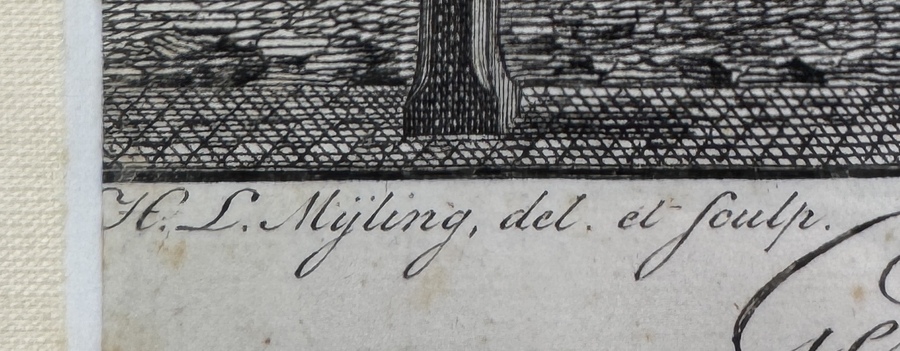 H. L. Mÿling, del. et sculp.